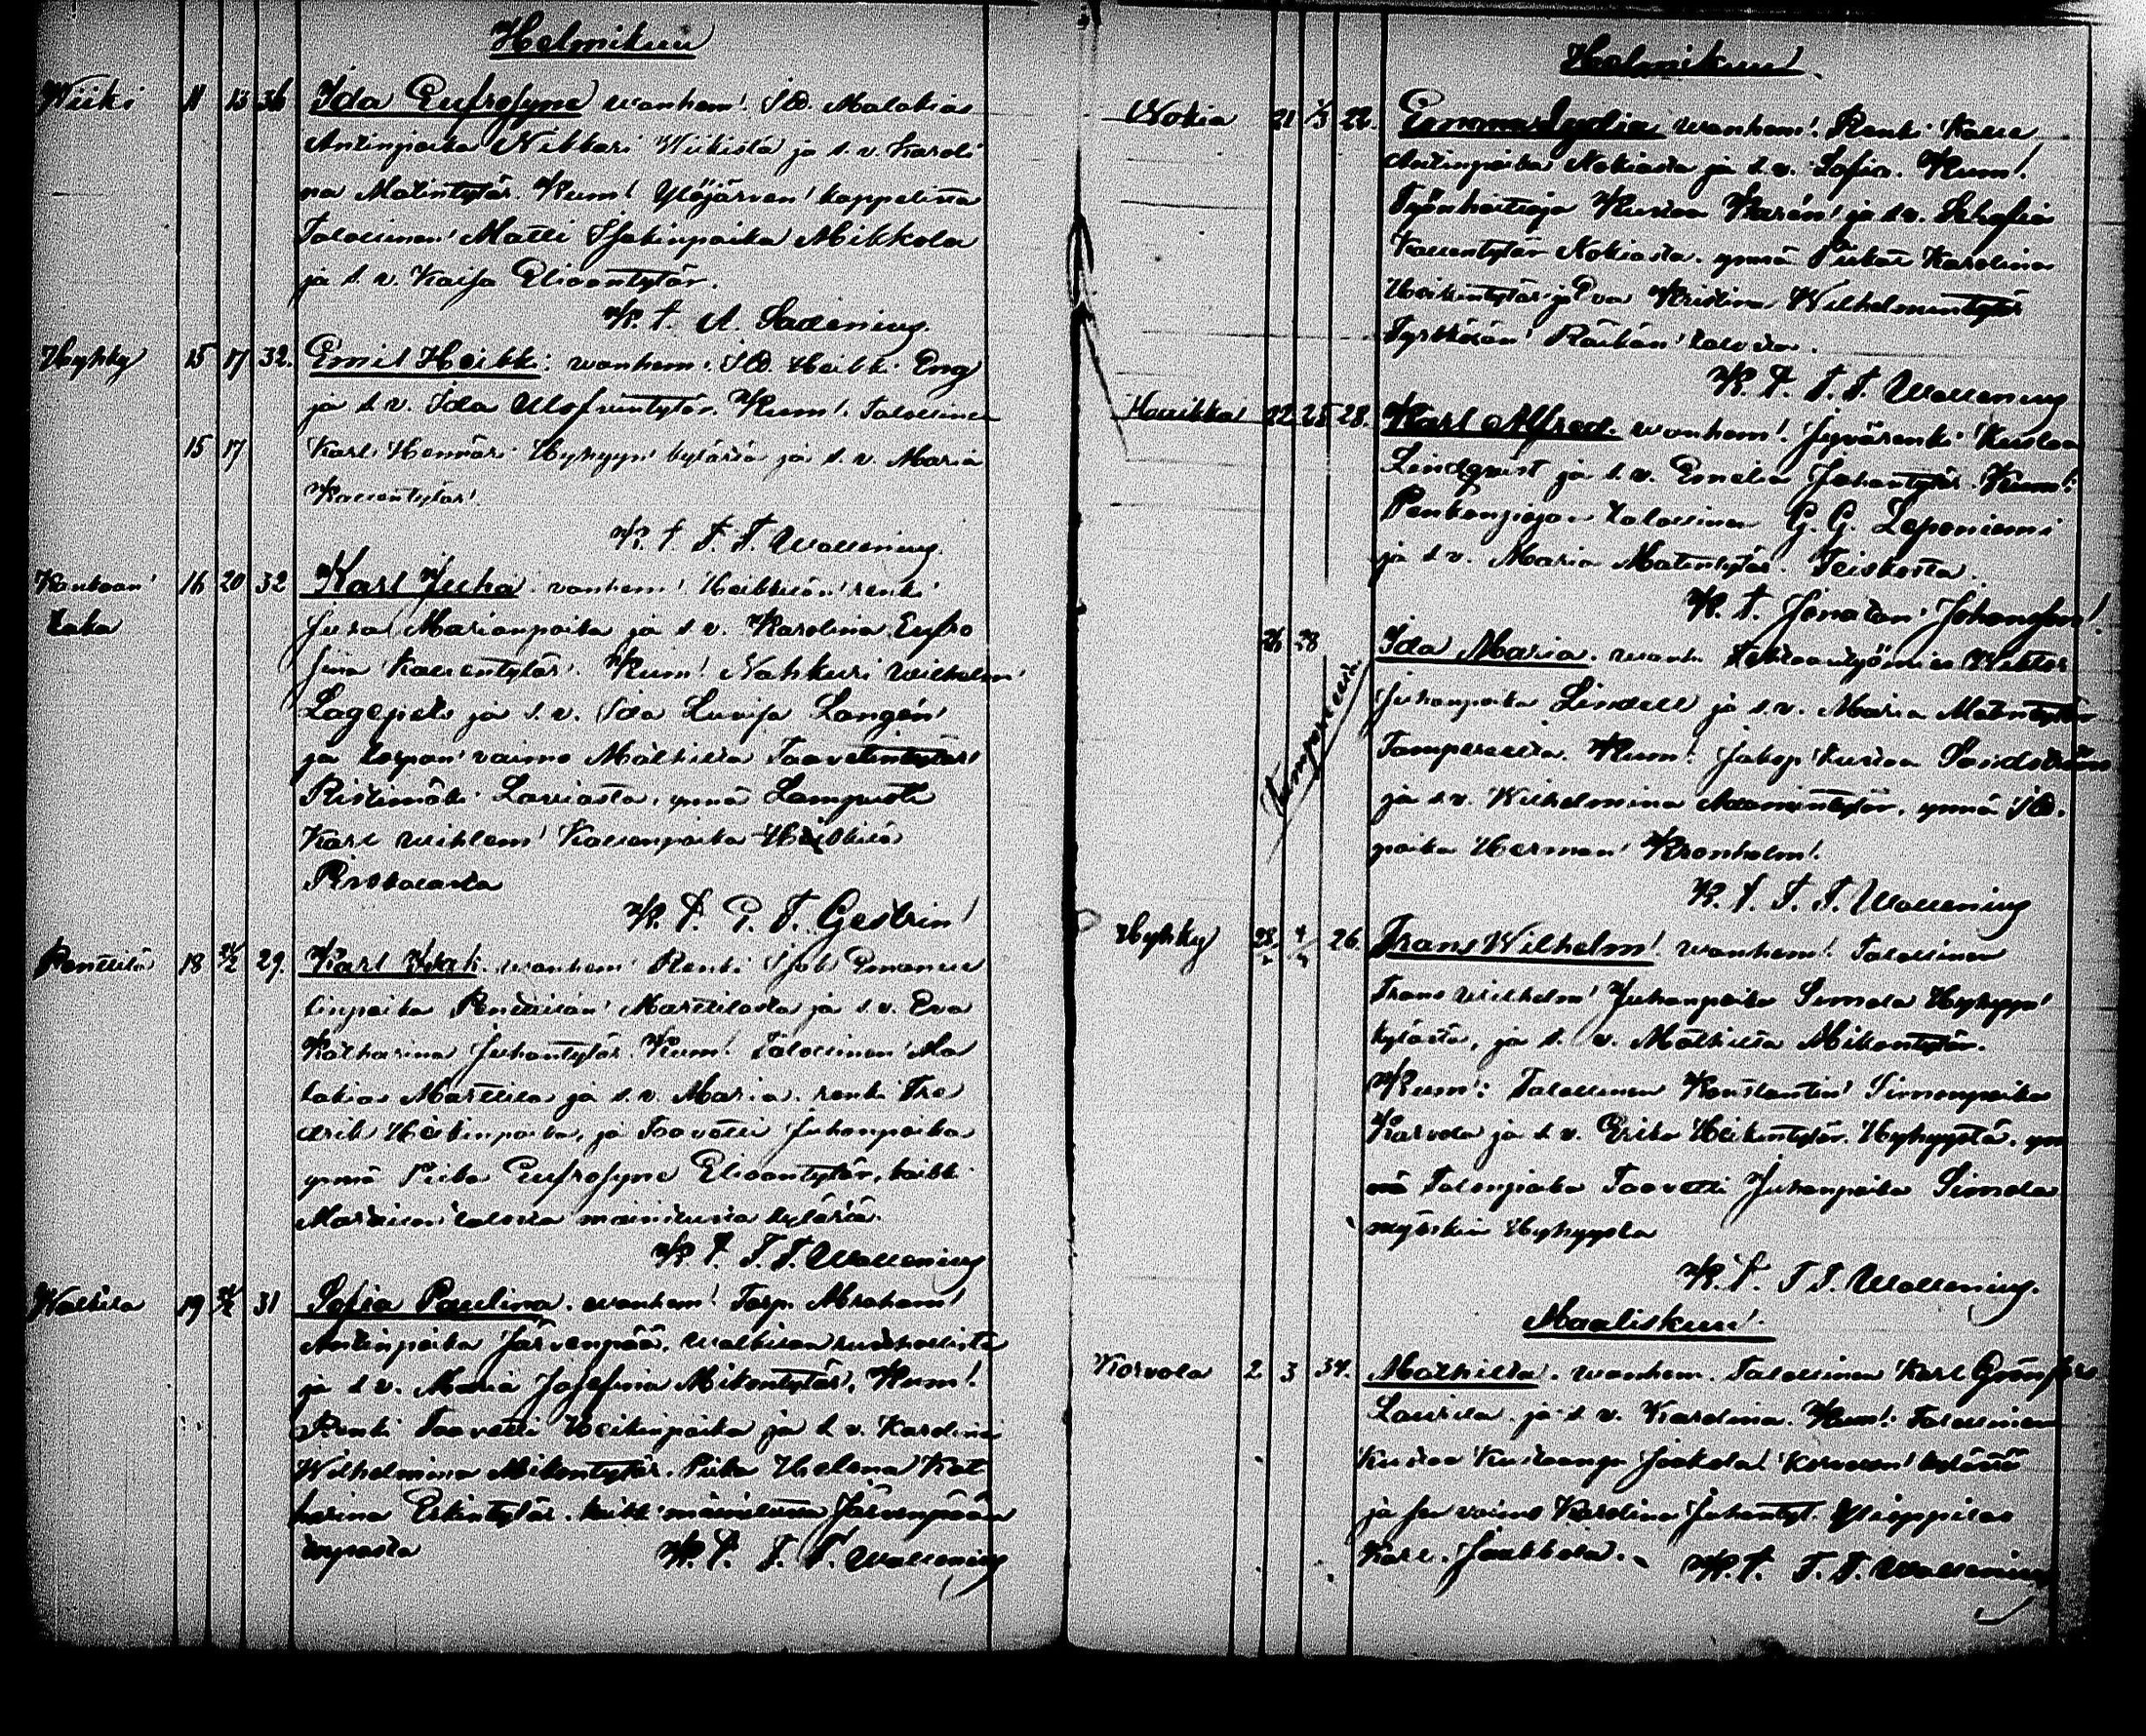 Helmikuu
Wiiki 11 13 36 Ida Eufrosyne wanhem! Itll. Malakias
Antinpoika Nikkari Wiikistä ja s. v. Karoli
na Matintytär. Kum! Ylöjärven kappelista
Talollinen Matti Isakinpoika Mikkola
ja s. v. Kaisa Eliaantytär.
K. t. A. Ladenius.
Hyhky 15 17 32. Emil Heikki: wanhem: Itll. Heikki Eng
ja s. v. Ida Ulofvintytär. Kum! Talollinen
15 17 Karl Hennäri Hyhyyn kylästä ja s. v. Maria
Kallentytär!
K. t. F. F. Wallenius.
16 20 32 Karl Juha. vanhem! Heikkilän renki
taka Juha Marianpoika ja s. v. Karolina Eufro
siina Kallentytär. Kum! Nahkuri Wilhelm
ja s. v. Ida Luvisa Langén
ja torpan vaimo Mathilta Taavetintytär
Ristimäki Laviasta, ynnä
Karl Wihlem Kallenpoika Heikkilä
Pirkkalasta
K. t. G. F. Gestrin
Penttilä 18 24/2 29. Karl Isak. wanhem! Renki Job Emanue
linpoika Penttilän Marttilasta ja s. v. Eva
Katharina Juhantytär. Kum! Talollinen Ma
lakias Marttila ja s. v. Maria. renki Fre
drik Heikinpoika, ja Taavetti Juhanpoika
ynnä Piika Eufrosyne Eliaantytär, kaikki
Marttilan talosta mainitusta kylästä.
K. t. F. F. Wallenius
Walkila 19 24/2 31 Sofia Paulina. wanhem! Torp. Abraham
Antinpoika Järvenpää, Walkilan
ja s. v. Maria Josefina Mikontytär, Kum!
Renki Taavetti Heikinpoika ja s. v. Karolina
Wilhelmina Mikontytär. Piika Helena Kat
harina Erkintytär. kaikki mainitusta Järvenpään
torpasta K. t. F. F. Wallenius
Helmikuu.
Nokia 21 1/3 22. Emma Lydia wanhem! Renki Kalle
Antinpoika Nokiasta ja s. v. Sofia. Kum!
Työnhoitaja Kustaa Karén ja s. v. Sofia
Kallentytär Nokiasta. ynnä Piikat Karolina
Heikintytär ja Eva Kristina Wilhelmintytär
Tyrkkölän Räikän talosta.
K. t. F. F. Wallenius
Hauikka 22 25 28. Karl Alfred. wanhem! Jyvärenki Kustaa
Lindqvist ja s. v. Emelia Juhantytär. Kum!
talollinen G. G. Leponiemi
ja s. v. Maria Matintytär. Teiskosta.
K. t. Jonatan Johansson!
26 28 Ida Maria. wanh. Wiktor
Juhanpoika Lindell ja s. v. Maria Matintytär
Tampereelta. Kum: Kustaa Sandström
ja s. v. Wilhelmina Aadamintytär, ynnä Itll.
poika Herman Kronholm!
K. t. F. F. Wallenius
Tampereelle
Hyhky 28/2 4/3 26. Frans Wilhelm! wanhem! Talollinen
Frans Wilhelm Juhanpoika Simola Hyhyyn
kylästä, ja s. v. Mathilta Mikontytär.
Kum: Talollinen Konstantin Simonpoika
Karvola ja s. v. Erika Heikintytär. Hyhyystä. yn
nä Talonpoika Taavetti Juhanpoika Simola
myöskin Hyhyystä
K. t. F. F. Wallenius.
Maaliskuu.
Korvola 2 3 34. Mathilta. wanhem. Talollinen Karl Grönfors
Laurila ja s. v. Karolina. Kum!: Talollinen
Kustaa Jaakola! Korvolan kylästä
ja sen vaimo Karolina Juhantyt. Ylioppilas
Karl. Jaakkola. K. t. F. F. Wallenius